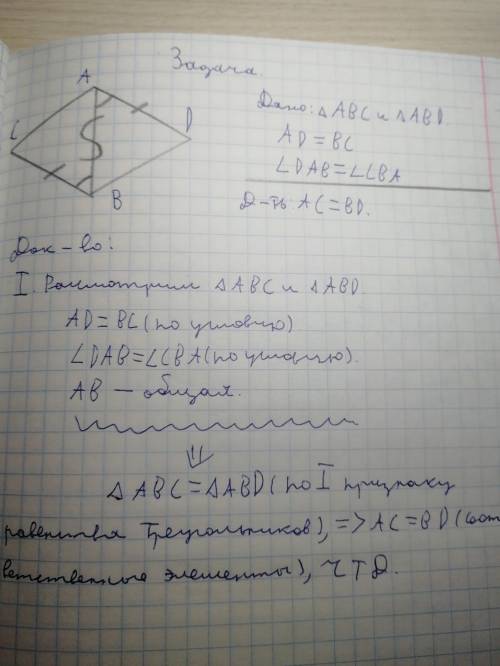 Задача.
A
C
D
B
Дано: △ABC и △ABD.
AD = BC
∠DAB = ∠CBA
Д-ть AC = BD.
Док-во:
I. Рассмотрим △ABC и △ABD.
AD = BC (по условию)
∠DAB = ∠CBA (по условию).
AB — общая.
⇓
△ABC = △ABD (по I признаку
равенства треугольников), => AC = BD (соот
ветственные элементы), ЧТД.